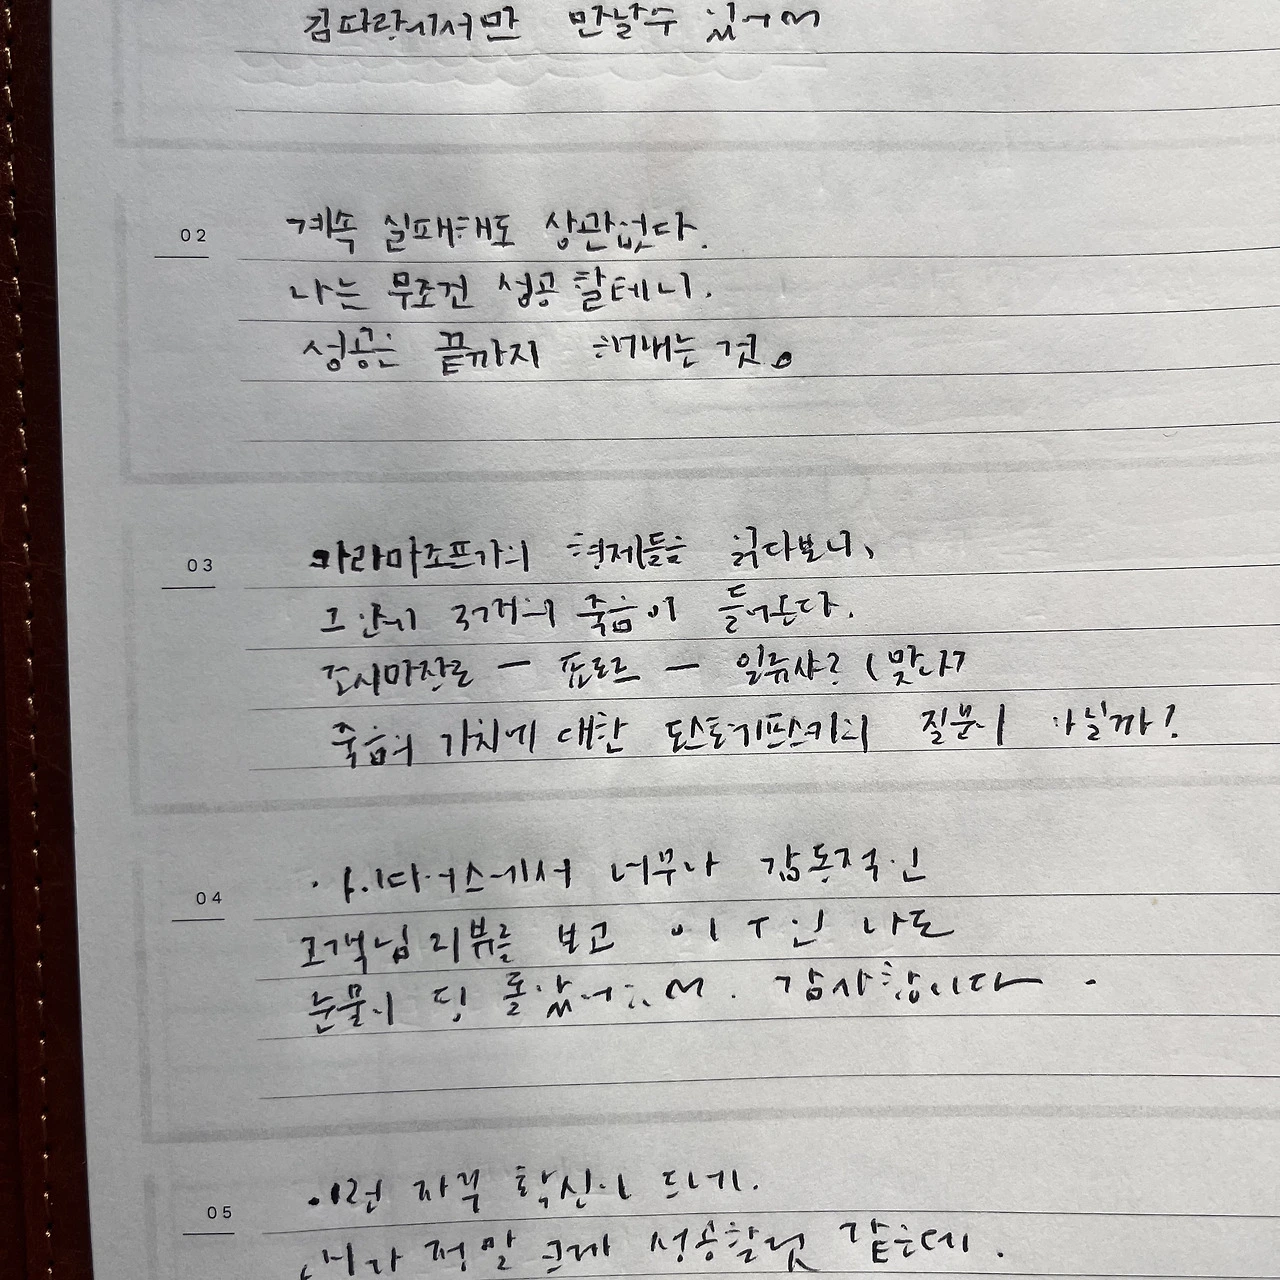 김파랑에서만 만날 수 있어여
02
계속 실패해도 상관없다.
나는 무조건 성공 할테니.
성공은 끝까지 해내는 것.
03
카라마조프가의 형제들을 읽다보니,
그 안에 3가지의 죽음이 들어온다.
조시마장로 — 표도르 — 일류샤? (맞나?
죽음의 가치에 대한 도스토예프스키의 질문이 아닐까?
04
에서 너무나 감동적인
고객님 리뷰를 보고 나도
눈물이 핑 돌았어여. 감사합니다.
05
이런 자꾸 확신이 드네.
내가 정말 크게 성공할것 같은데.